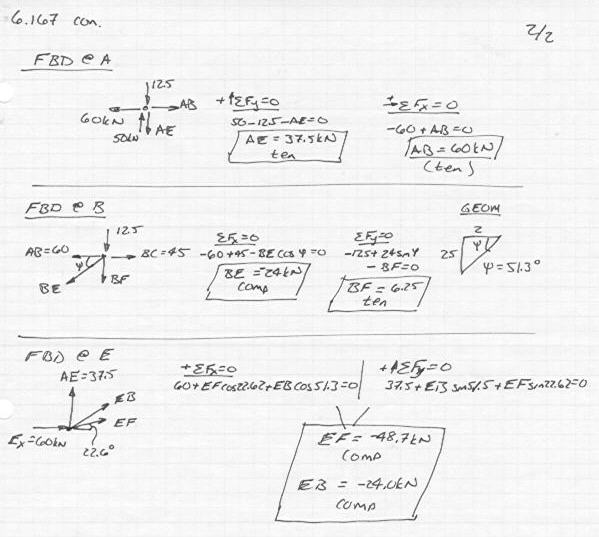 6.167 con.
2/2
FBD @ A
12.5
60kN
AB
50kN
AE
+↑ΣFy=0
50-12.5-AE=0
AE = 37.5kN
ten
+→ΣFx = 0
-60 + AB = 0
AB = 60kN
(ten)
FBD @ B
12.5
AB=60
BC=45
ψ
BE
BF
ΣFx=0
-60+45-BE cos ψ = 0
BE = -24kN
comp
ΣFy=0
-12.5+24sinψ
- BF=0
BF = 6.25
ten
GEOM
2
25
ψ
ψ = 51.3°
FBD @ E
AE=37.5
EB
EF
Ex=60kN
22.6°
+→ΣFx=0
60+EFcos22.62+EBcos51.3=0
+↑ΣFy=0
37.5+EBsin51.5+EFsin22.62=0
EF = -48.7kN
comp
EB = -24.0kN
comp